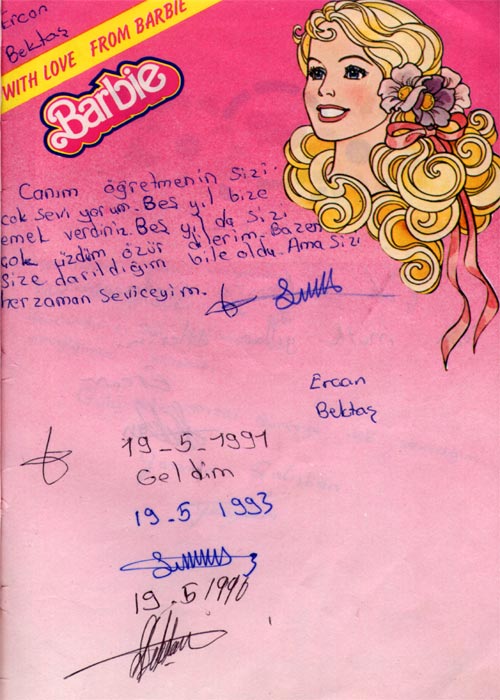 Ercan
Bektaş
WITH LOVE FROM BARBIE
Barbie
Canım öğretmenin Sizi
çok sevi yorum. Beş yıl bize
emek verdiniz. Beş yılda sizi
çok üzdüm, özür dilerim. Bazen
size darıldığım bile oldu. Ama sizi
herzaman seviceyim.
Ercan
Bektaş
19-5-1991
Geldim
19-5 1993
19.5 1996